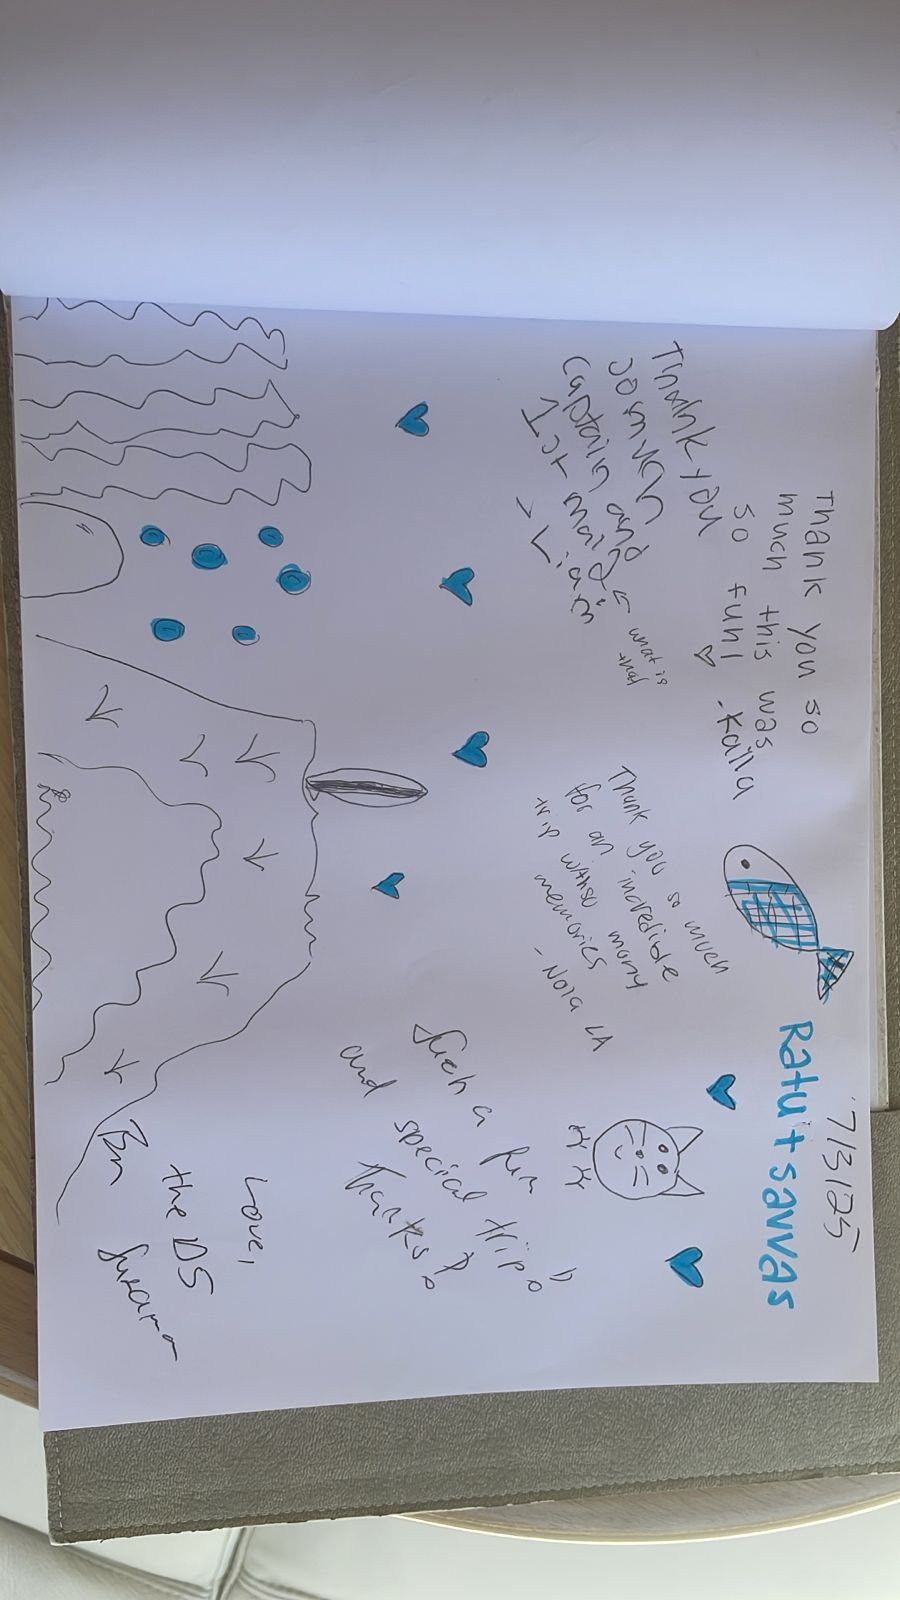 7/3/25
Ratu + savvas
Thank you so
much this was
so fun! -Kaila
Thank you
Captain and
1st
- Liam
what is
that
Thank you so much
for an incredible
trip with so many
memories
Such a fun
and special trip!
Thanks!
Love,
the DS